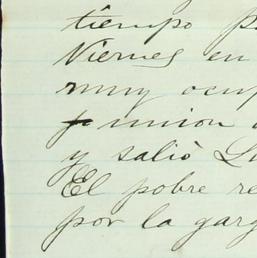 tiempo p
Viernes en
muy ocup
union
y salió Lu
El pobre re
por la garg